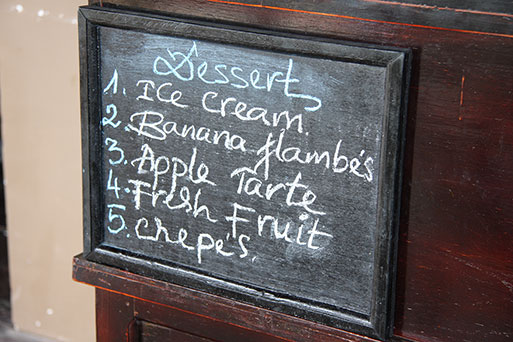 Dessert
1. Ice Cream.
2. Banana flambés
3. Apple Tarte
4. Fresh Fruit
5. Chepés.